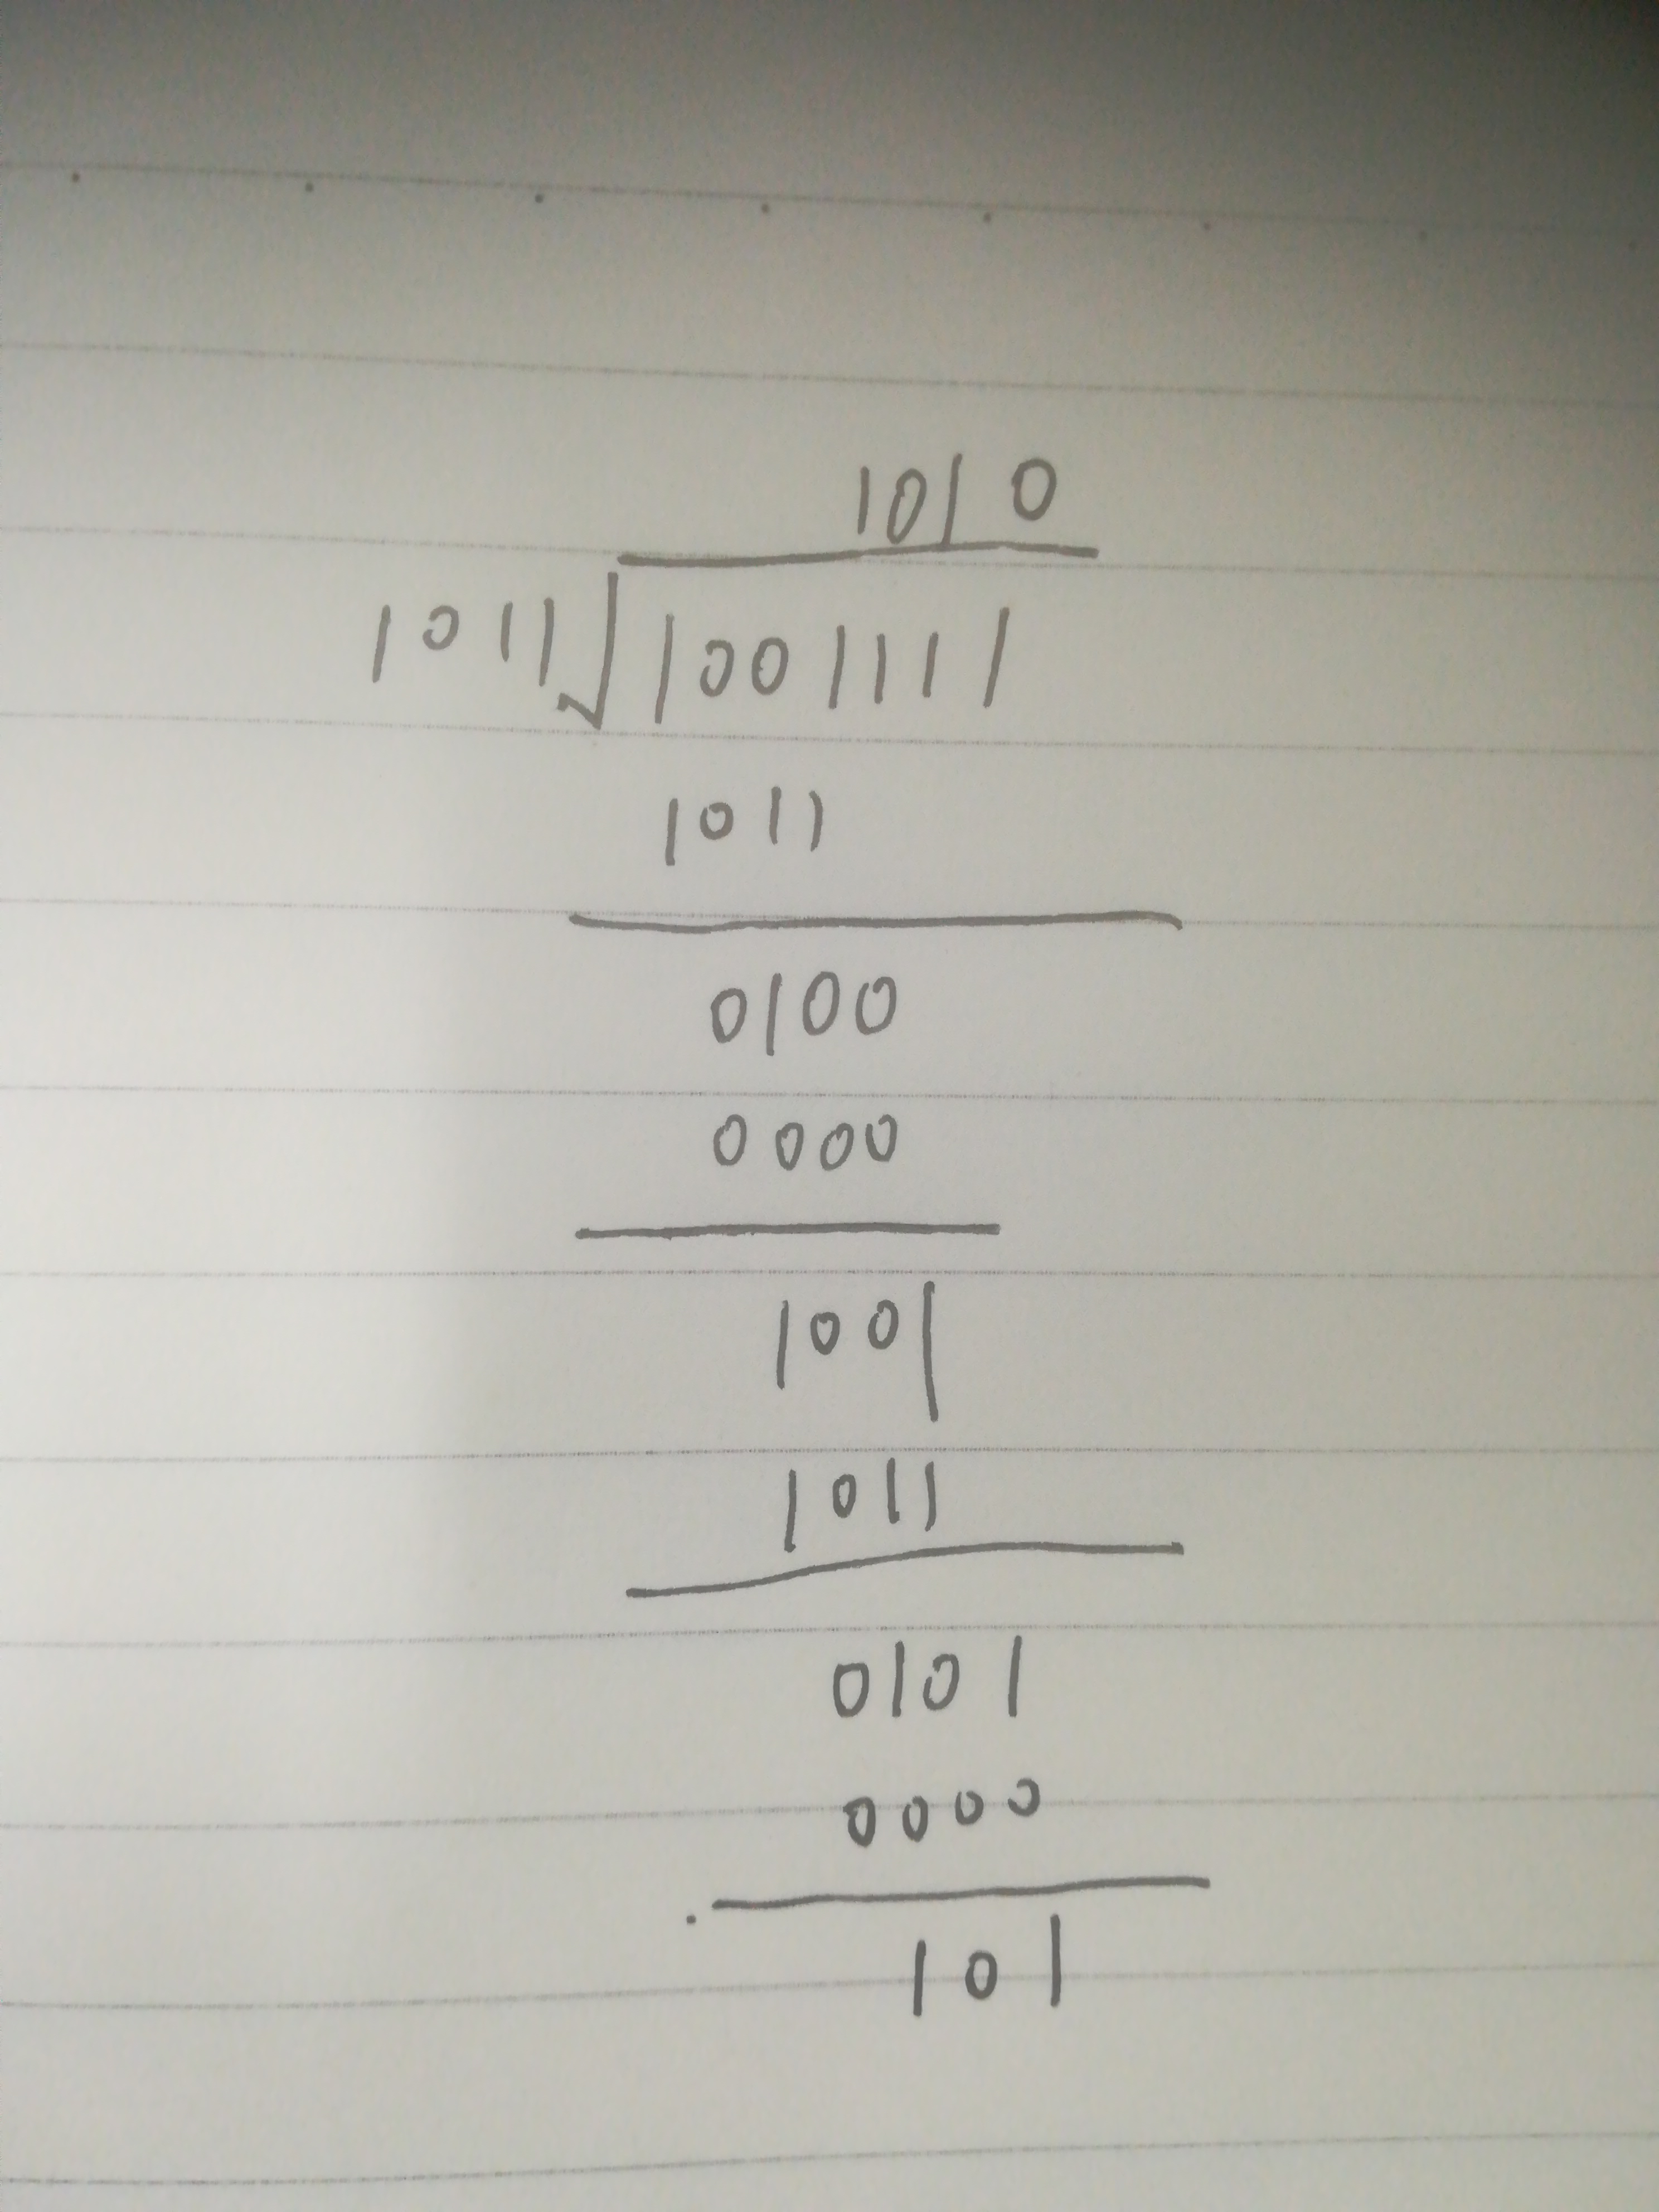 1010
1011√1001111
1011
0100
0000
1001
1011
0101
0000
101